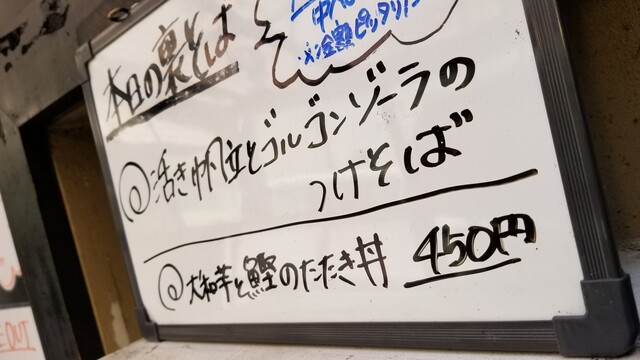 本日の裏そば
※金額ピッタリ
◎活き帆立とゴルゴンゾーラの
つけそば
◎大和芋と鰹のたたき丼 450円